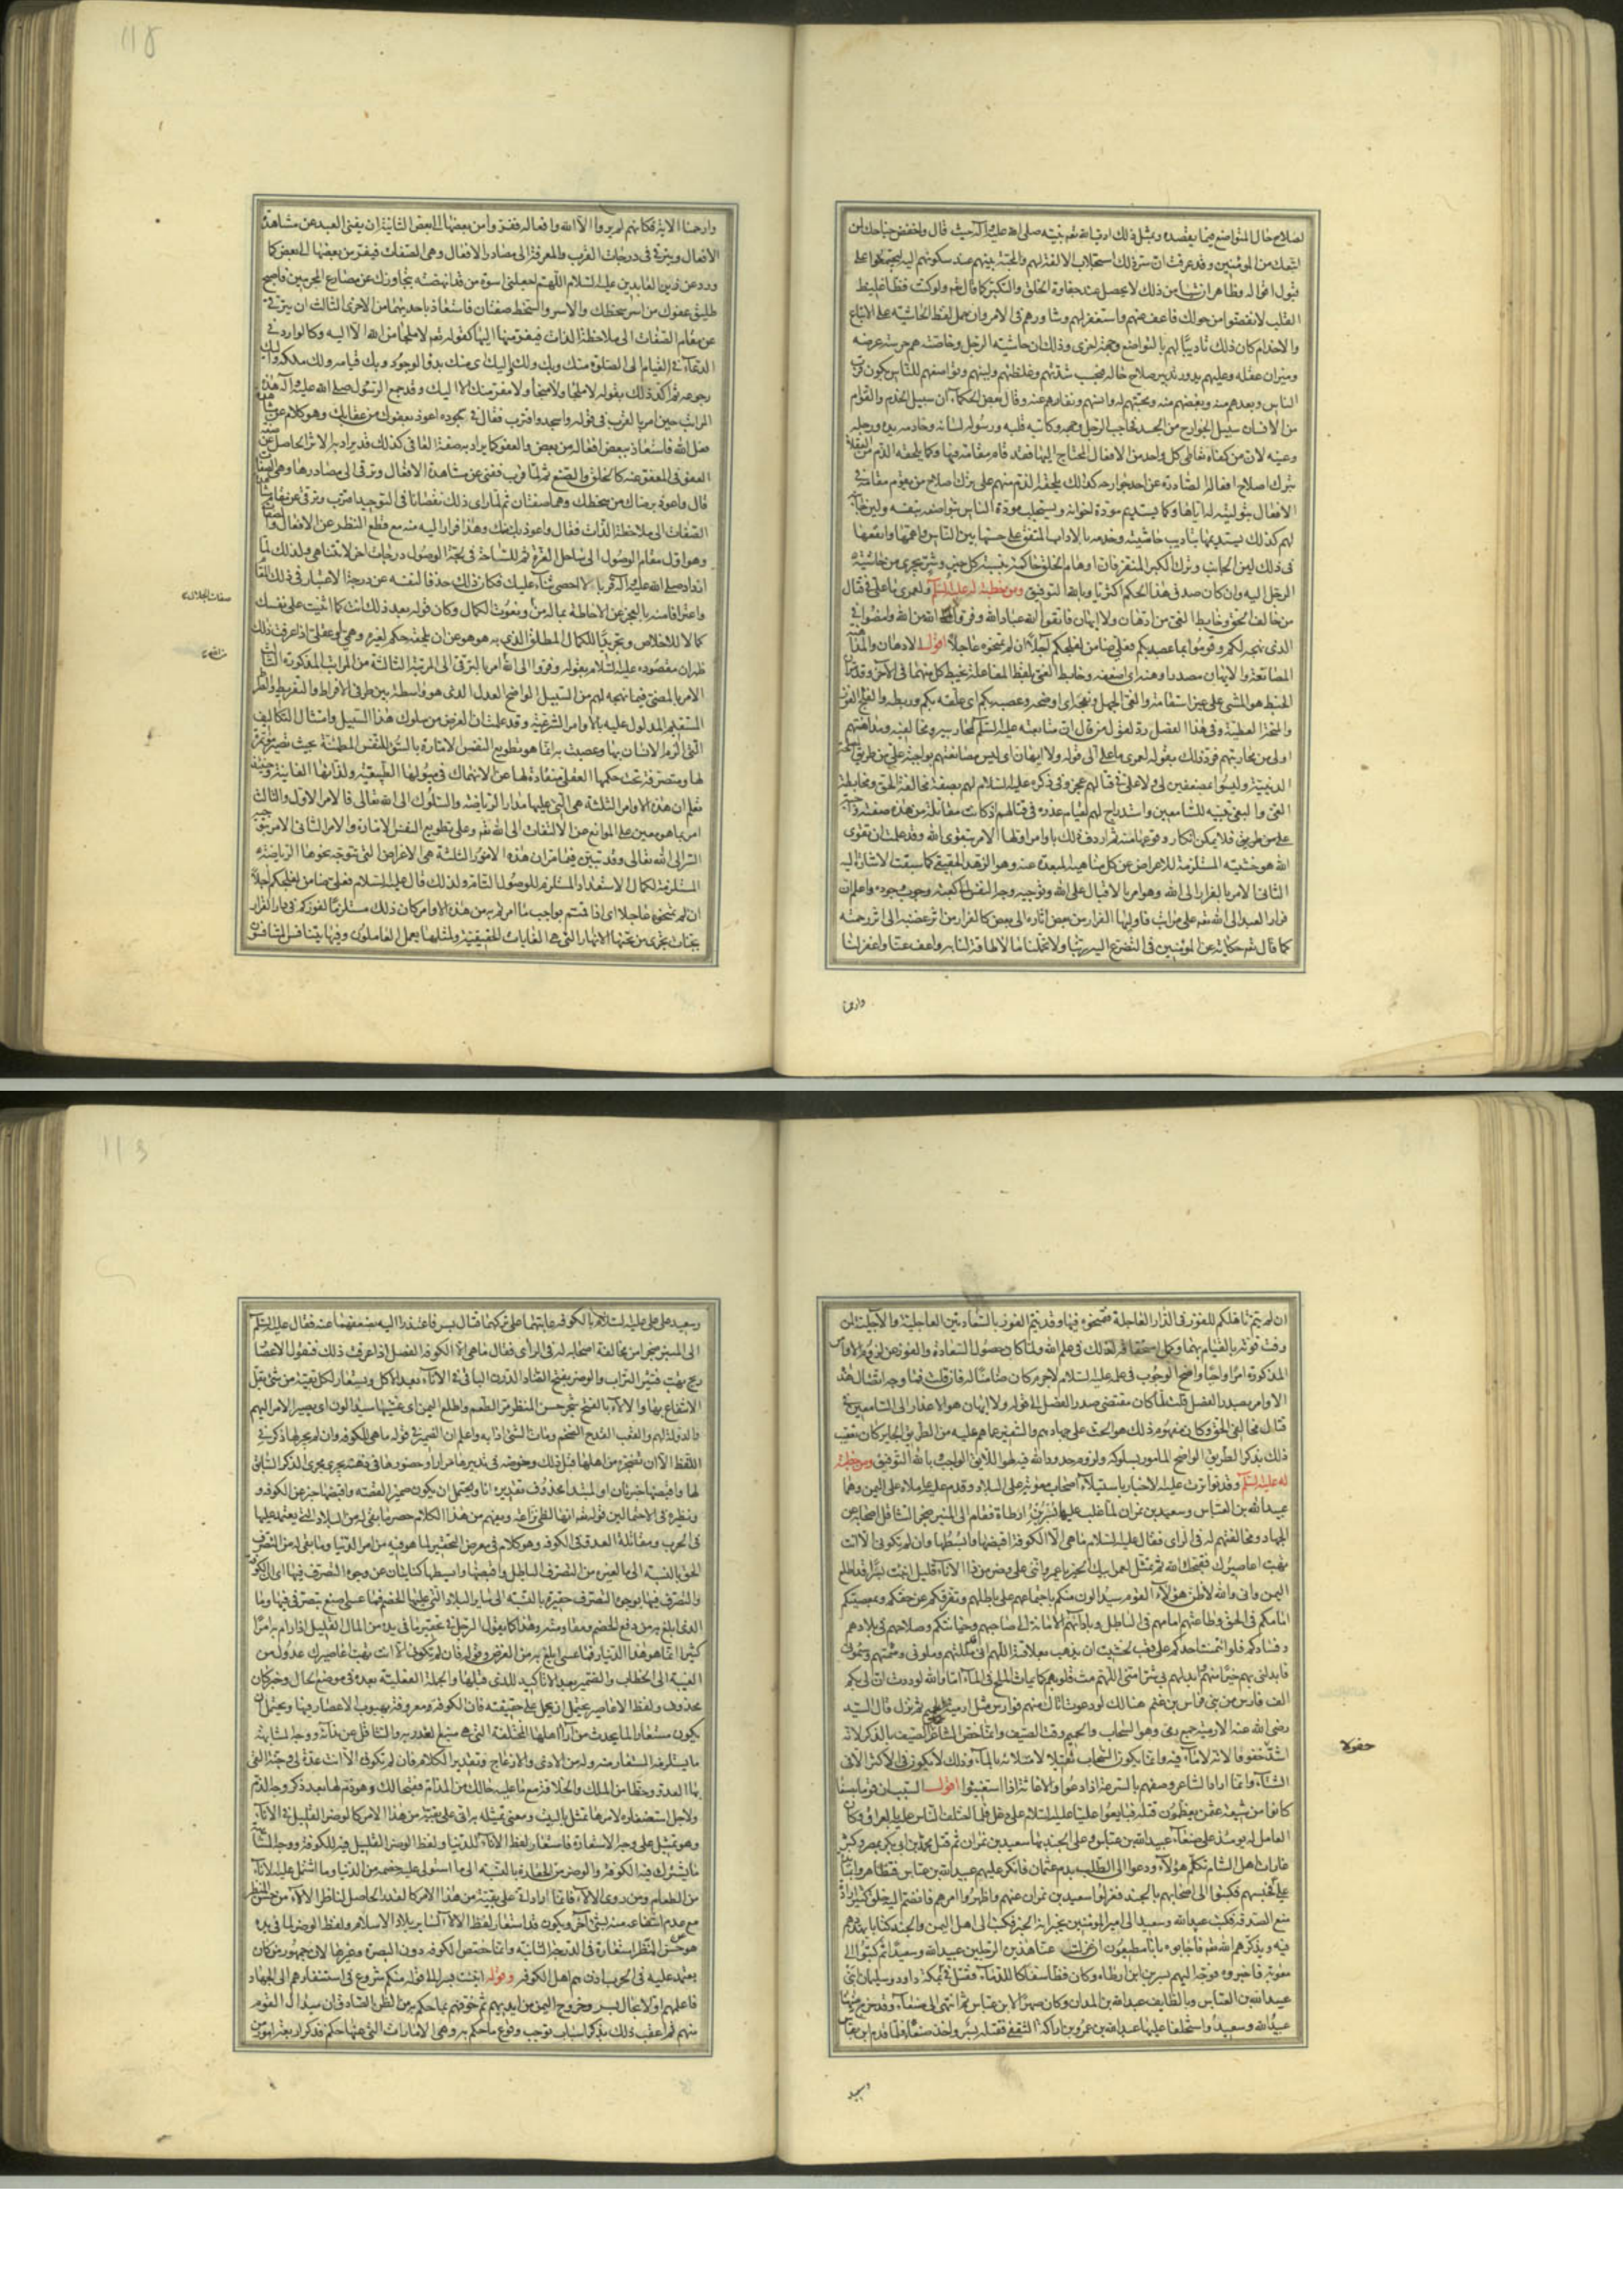 لصلاح حال المتواضع فيما يقصده وبمثل ذلك ادب الله نبيه صلى الله عليه وآله حيث قال واخفض جناحك لمن
اتبعك من المؤمنين وقد عرفت ان سر ذلك استجلاب الالفة لهم والمحبة بينهم عند سكونهم اليه ليجتمعوا على
قبول اقواله وظاهر ان شيئا من ذلك لا يحصل عند جفاوة الخلق والتكبر كما قال تعالى ولو كنت فظا غليظ
القلب لانفضوا من حولك فاعف عنهم واستغفر لهم وشاورهم في الامر وان حمل لفظ الحاشية على الاتباع
والاخدام كان ذلك تاديبا لهم بالتواضع من جهة اخرى وذلك ان حاشية الرجل وخاصته هم حرسة عرضه
وميزان عقله وعليهم يدور تدبير صلاح حاله فبحسب شدتهم وغلظتهم ولينهم وتواضعهم للناس يكون قرب
الناس وبعدهم منه وبغضهم منه ومحبتهم له وانسهم ونفارهم عنه وقال بعض الحكماء ان سبيل الخدم والقوام
من الانسان سبيل الجوارح من الجسد فحاجب الرجل وجهه وكاتبه قلبه ورسوله لسانه وخادمه يده ورجله
وعينه لان من كفاه تعاطي كل واحد من الافعال المحتاج اليها فقد قام مقامه فيها وكما يلحقه الذم من العقلاء
بترك اصلاح افعاله الصادرة عن احد جوارحه كذلك يلحقه الذم منهم على ترك اصلاح من يقوم مقامه في
الافعال بتوليته له اياها وكما يستديم مودة اخوانه ويستجلب مودة الناس بتواضعه بنفسه ولين جانبه
لهم كذلك يستديمها بتاديب حاشيته وخدمه بالاداب المتفق على حسنها بين الناس واعمها وانفعها
في ذلك لين الجانب وترك الكبر المنفر فان اوهام الخلق حاكمة بنسبة كل خير وشر يجري من حاشية
الرجل اليه وان كان صدق هذا الحكم اكثريا وبالله التوفيق ومن خطبة له عليه السلام ولعمري ما علي في قتال
من خالف الحق وخابط الغي من ادهان ولا ايهان فاتقوا الله عباد الله وفروا الى الله من الله وامضوا في
الذي نهجه لكم وقوموا بما عصبه بكم فعلي ضامن لفلجكم آجلا ان لم تمنحوه عاجلا اقول الادهان والمداهنة
المصانعة والايهان مصدر اوهنه اي اضعفه وخابط الغي بلفظ المفاعلة
الخبط هو المشي على غير استقامة والغي الجهل ونهجه اي اوضحه وعصبه بكم اي علقه بكم وربطه والفلج الفوز
والمنحة العطية وفي هذا الفصل رد لقول من قال ان متابعته عليه السلام لمحاربيه ومخالفيه ومداهنتهم
اولى من محاربتهم فرد ذلك بقوله لعمري ما علي الى قوله ولا ايهان اي ليس مصانعتهم بواجبة علي من طريق المصلحة
الدينية وليسوا بمضعفين لي ولا علي في قتالهم عجز وفي ذكره عليه السلام لهم بصفة مخالفة الحق ومخابطة
الغي والبغي تنبيه للسامعين واستدراج لهم لقيام عذره في قتالهم اذ كانت مقاتلة من هذه صفته واجبة
على من طريق فلا يمكن انكار وقوعها منه ثم اردف ذلك باوامر اولها الامر بتقوى الله وقد علمت ان تقوى
الله هو خشيته المستلزمة للاعراض عن كل مناهيه المبعدة عنه وهو الزهد الحقيقي كما سبقت الاشارة اليه
الثاني الامر بالفرار الى الله وهو امر بالاقبال على الله وتوجيه وجه النفس الى كعبة وجوب وجوده واعلم ان
فرار العبد الى الله تعالى على مراتب فاولها الفرار من بعض آثاره الى بعض كالفرار من اثر غضبه الى اثر رحمته
كما قال تعالى حكاية عن المؤمنين في التضرع اليه ربنا ولا تحملنا ما لا طاقة لنا به واعف عنا واغفر لنا
وارحمنا
١١٥
وارحمنا الاية فكانهم لم يروا الا الله وافعاله ففروا من بعضها الى بعض الثانية ان يفنى العبد عن مشاهدة
الافعال ويترقى في درجات القرب والمعرفة الى مصادر الافعال وهي الصفات فيفر من بعضها الى بعض كما
ورد عن زين العابدين عليه السلام اللهم اجعلني اسوة من قد انهضته بتجاوزك عن مصارع المجرمين فاصبح
طليق عفوك من اسر سخطك والاسر والسخط صفتان فاستعاذ باحديهما من الاخرى الثالث ان يترقى
عن مقام الصفات الى ملاحظة الذات فيفر منها اليها كقوله تعالى لا ملجأ من الله الا اليه وكالوارد في
الدعاء في القيام الى الصلوة منك وبك ولك واليك اي منك بدؤ الوجود وبك قيامه ولك ملكه واليك
رجوعه ثم اكد ذلك بقوله لا ملجأ ولا منجا ولا مفر منك الا اليك وقد جمع الرسول صلى الله عليه وآله هذه
المراتب حين امر بالقرب في قوله واسجد واقترب فقال في سجوده اعوذ بعفوك من عقابك وهو كلام عن مشاهدة
فعل الله فاستعاذ ببعض افعاله من بعض والعفو كما يراد به صفة العافي كذلك قد يراد به الاثر الحاصل عن صفة
العفو في المعفو عنه كالخلق والصنع ثم لما قرب ففني عن مشاهدة الافعال وترقى الى مصادرها وهي الصفات
قال واعوذ برضاك من سخطك وهما صفتان ثم لما راى ذلك نقصانا في التوحيد اقترب وترقى عن مقام مشاهدة
الصفات الى ملاحظة الذات فقال واعوذ بك منك وهذا فرار اليه منه مع قطع النظر عن الافعال والصفات
وهو اول مقام الوصول الى ساحل العزة ثم للسباحة في لجة الوصول درجات اخر لا تتناهى ولذلك لما
ازداد صلى الله عليه وآله قربا قال لا احصي ثناء عليك فكان ذلك حذفا لنفسه عن درجة الاعتبار في ذلك المقام
واعترافا منه بالعجز عن الاحاطة بماله من ونعوت الكمال وكان قوله بعد ذلك انت كما اثنيت على نفسك
كمالا للاخلاص وتجريدا للكمال المطلق الذي به هو هو عن ان يلحقه حكم لغيره وهمي او عقلي اذا عرفت ذلك
ظهر ان مقصوده عليه السلام بقوله وفروا الى الله امر بالترقى الى المرتبة الثالثة من المراتب المذكورة الثالث
الامر بالمضي فيما نهجه لهم من السبيل الواضح العدل الذي هو واسطة بين طرفي الافراط والتفريط والصراط
المستقيم المدلول عليه بالاوامر الشرعية وقد علمت ان الغرض من سلوك هذا السبيل وامتثال التكاليف
التي الزم الانسان بها وعصبت به انما هو تطويع النفس الامارة بالسوء للنفس المطمئنة بحيث تصير مؤتمرة
لها ومتصرفة تحت حكمها العقلي منقادة لها عن الانهماك في ميولها الطبيعية ولذاتها الفانية وحينئذ
تعلم ان هذه الاوامر الثلثة هي التي عليها مدار الرياضة والسلوك الى الله تعالى فالامر الاول والثالث
امر بما هو معين على الموانع عن الالتفات الى الله تعالى وعلى تطويع النفس الامارة والامر الثاني الامر بتوجيه
السر الى الله تعالى وقد تبين فيما مر ان هذه الامور الثلثة هي الاغراض التي تتوجه نحوها الرياضة
المستلزمة لكمال الاستعداد المستلزم للوصول التام ولذلك قال عليه السلام فعلي ضامن لفلجكم آجلا
ان لم تمنحوه عاجلا اي اذا قمتم بواجب ما امرتم به من هذه الاوامر كان ذلك مستلزما لفوزكم في دار القرار
بجنات تجري من تحتها الانهار التي هي الغايات الحقيقية ولمثلها يعمل العاملون وفيها يتنافس المتنافسون
صفات الجلال
ان لم يتم تاهلكم للفوز في الدار العاجلة فتمنحوه فيها وقد يتم الفوز بالسعادتين العاجلية والآجلية لمن
وفت قوته بالقيام بهما وكمل استحقاقه لذلك في علم الله ولما كان حصول السعادة والفوز عن لزوم الاوامر
المذكورة امرا واجبا واضح الوجوب في علمه عليه السلام لاجرم كان ضامنا له فان قلت فما وجه اتصال هذه
الاوامر بصدر الفصل قلت لما كان مقتضى صدر الفصل الى قوله ولا ايهان هو الاعذار الى السامعين في
قتال مخالفي الحق وكان مفهوم ذلك هو الحث على جهادهم والتنفير عما هم عليه من الطريق الجاير كان تعقيب
ذلك بذكر الطريق الواضح المأمور بسلوكه ولزوم حدود الله فيه هو اللايق الواجب بالله التوفيق ومن خطبة
له عليه السلام وقد تواترت عليه الاخبار باستيلاء اصحاب معوية على البلاد وقدم عليه عاملاه على اليمن وهما
عبيد الله بن العباس وسعيد بن نمران لما غلب عليها بسر بن ارطاة فقام الى المنبر ضجرا بتثاقل اصحابه عن
الجهاد ومخالفتهم له في الراي فقال عليه السلام ما هي الا الكوفة اقبضها وابسطها وان لم تكوني الا انت
تهب اعاصيرك فقبحك الله ثم تمثل لعمر ابيك الخير يا عمرو انني على وضر من ذا الاناء قليل انبئت بسرا قد اطلع
اليمن واني والله لاظن هؤلاء القوم سيدالون منكم باجتماعهم على باطلهم وتفرقكم عن حقكم وبمعصيتكم
امامكم في الحق وطاعتهم امامهم في الباطل وبادائهم الامانة الى صاحبهم وخيانتكم وصلاحهم في بلادهم
وفسادكم فلو ائتمنت احدكم على قعب لخشيت ان يذهب بعلاقته اللهم اني قد مللتهم وملوني وسئمتهم وسئموني
فابدلني بهم خيرا منهم وابدلهم بي شرا مني اللهم مث قلوبهم كما يماث الملح في الماء اما والله لوددت ان لي بكم
الف فارس من بني فراس بن غنم هنالك لو دعوت اتاك منهم فوارس مثل ارمية الحميم ثم نزل قال السيد
رضي الله عنه الارمية جمع رمي وهو السحاب والحميم وقت الصيف وانما خص الشاعر الصيف بالذكر لانه
اشد خفوفا لانه لا ماء فيه وانما يكون السحاب ثقيلا لامتلائه بالماء وذلك لا يكون في الاكثر الا في
الشتاء وانما اراد الشاعر وصفهم بالسرعة اذا دعوا والاغاثة اذا استغيثوا اقول السبب ان قوما بصنعاء
كانوا من شيعة عثمن يعظمون قتله فبايعوا عليا عليه السلام على دغل فلما اختلف الناس عليه بالعراق وكان
العامل له يومئذ على صنعاء عبيد الله بن عباس وعلى الجند بها سعيد بن نمران ثم قتل محمد بن ابي بكر بمصر وكثرت
غارات اهل الشام تكلم هؤلاء ودعوا الى الطلب بدم عثمان فانكر عليهم عبيد الله بن عباس فتظاهروا بمنابذة
علي فحبسهم فكتبوا الى اصحابهم بالجند فعزلوا سعيد بن نمران عنهم واظهروا امرهم فانضم اليهم خلق كثير ارادة
منع الصدقة فكتب عبيد الله وسعيد الى امير المؤمنين يخبرانه الخبر فكتب الى اهل اليمن والجند كتابا يهددهم
فيه ويذكرهم الله تعالى فاجابوه بانا مطيعون ان عزلت عنا هذين الرجلين عبيد الله وسعيدا ثم كتبوا الى
معوية فاخبروه فوجه اليهم بسر بن ابي ارطاة وكان فظا سفاكا للدماء فقتل في مكة داود وسليمان ابني
عبيد الله بن العباس وبالطايف عبد الله بن المدان وكان صهرا لابن عباس ثم انتهى الى صنعاء وقد خرج منها
عبيد الله وسعيد واستخلفا عليها عبد الله بن عمرو بن اراكة الثقفي فقتله بسر واخذ صنعاء فلما قدم ابن عباس
وسعيد
وسعيد على علي عليه السلام بالكوفة عاتبهما على تركهما قتال بسر فاعتذرا اليه بضعفهما عنه فقام عليه السلام
الى المنبر ضجرا من مخالفة اصحابه له في الراي فقال ما هي الا الكوفة الفصل اذا عرفت ذلك فنقول الاعصار
ريح تهب فتثير التراب والوضر بفتح الضاد الدرن الباقي في الاناء بعد الاكل ويستعار لكل بقية من شيء يقل
الانتفاع بها والالاء بالفتح شجر حسن المنظر مر الطعم واطلع اليمن اي غشيها سيدالون اي يصير الامر اليهم
والدولة لهم والقعب القدح الضخم ومات الشيء اذابه واعلم ان الضمير في قوله ما هي للكوفة وان لم يجر لها ذكر في
اللفظ الا ان تضجره من اهلها قبل ذلك وخوضه في تدبيرها مرارا وحضورها في ذهنه يجري مجرى الذكر السابق
لها واقبضها خبر ثان او لمبتدا محذوف تقديره انا ويحتمل ان يكون ضمير القصة واقبضها خبر عن الكوفة و
ونظيره في الاحتمالين قوله تعالى انها لظى نزاعة ويفهم من هذا الكلام حصر ما بقي له من البلاد التي يعتمد عليها
في الحرب ومقابلة العدو في الكوفة وهو كلام في معرض التحقير لما هو فيه من امر الدنيا وما بقي له من التصرف
الحق بالنسبة الى ما لغيره من التصرف الباطل واقبضها وابسطها كنايتان عن وجوه التصرف فيها اي ان الكوفة
والتصرف فيها بوجوه التصرف حقيرة بالنسبة الى ساير البلاد التي عليها الخصم فما عسى اصنع بتصرفي فيها وما
الذي ابلغ به من دفع الخصم ومقاومته وهذا كما يقول الرجل في تحقير ما في يده من المال القليل اذا رام به امرا
كثيرا انما هو هذا الدينار فما عسى ابلغ به من الغرض وقوله فان لم تكوني الا انت تهب اعاصيرك عدول من
الغيبة الى الخطاب والضمير بعد الا تاكيد للذي قبلها والجملة الفعلية بعده في موضع الحال وخبر كان
محذوف ولفظ الاعاصير يحتمل ان يحمل على حقيقته فان الكوفة معروفة بهبوب الاعصار فيها ويحتمل ان
يكون مستعارا لما يحدث من آراء اهلها المختلفة التي هي منبع الغدر به والتثاقل عن ندائه ووجه المشابهة
ما يستلزمه المستعار منه وله من الاذى والازعاج وتقدير الكلام فان لم تكوني الا انت عدة لي وجنة القى
بها العدو وحظا من الملك والخلافة مع ما عليه حالك من المذام فقبحا لك وهو ذم لها بعد ذكر وجه الذم
ولاجل استصغاره لامرها تمثل بالبيت ومعنى تمثيله به اني على بقية من هذا الامر كالوضر القليل في الاناء
وهو تمثيل على وجه الاستعارة فاستعار لفظ الاناء للدنيا ولفظ الوضر القليل فيه للكوفة ووجه المشابهة
ما يشترك فيه الكوفة والوضر من الحقارة بالنسبة الى ما استولى عليه خصمه من الدنيا وما اشتمل عليه الاناء
من الطعام ومن روى الالاء فانما اراد اني على بقية من هذا الامر كالقدر الحاصل لناظر الالاء من حسن المنظر
مع عدم انتفاعه منه بشيء آخر ويكون قد استعار لفظ الالاء لساير بلاد الاسلام ولفظ الوضر لما في يده
هو حسن المنظر استعارة في الدرجة الثانية وانما خصص الكوفة دون البصرة وغيرها لان جمهور من كان
يعتمد عليه في الحرب اذن هم اهل الكوفة وقوله انبئت بسرا الى قوله منكم شروع في استنفارهم الى الجهاد
فاعلمهم اولا بحال بسر وخروج اليمن من ايديهم ثم خوفهم بما حكم به من الظن الصادق ان سيدال القوم
منهم ثم اعقب ذلك بذكر اسباب توجب وقوع ما حكم به وهي الامارات التي عنها حكم فذكر اربعة امور من